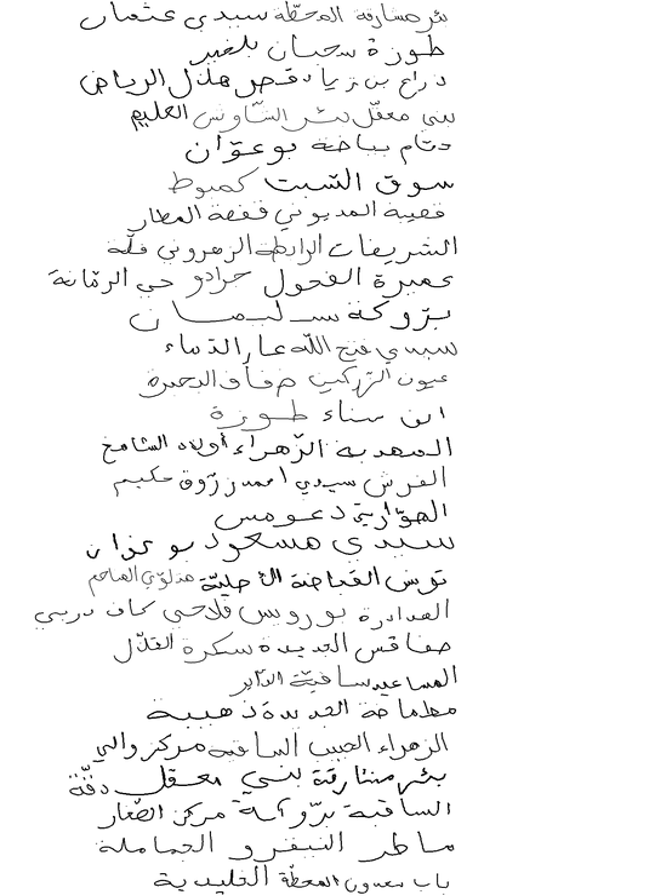 بئر مشارقة المحطّة سيدي عثمان
طوزة سحبان بلخير
ذراع بن زياد قصر هلال الرياض
بني معقل بئر الشاوش العليم
دقّام بياضة بوعوّان
سوق السّبت كمبوط
قصيبة المديوني قفصة المطار
الشريفات الرابطة الزهروني فلّة
عميرة الفحول حرادو حي الرمّانة
برّوكة سليمان
سيدي فتح اللّه عار الدّماء
عيون الزركين صفا البحيرة
ابن سناء طوزة
المهدية الزّهراء أولاد الشامخ
الفرش سيدي احمد زرّوق حكيم
الهوّارية دعومس
سيدي مسعود بوعوان
تونس القباضة الأصليّة هذلول
الهدادرة بورويس فلاحي كاف دربي
صفاقس الجديدة سكرة القلّال
المساعيد ساقية الدّاير
معلماضة الجديدة ذهيبة
الزهراء الحبيب الساقية مركز والي
بئر مشارقة بني معقل دقّة
الساقية برّوكة مركز الصّغار
ماطر النيفرو الحماملة
باب سعدون المحطّة الخليدية